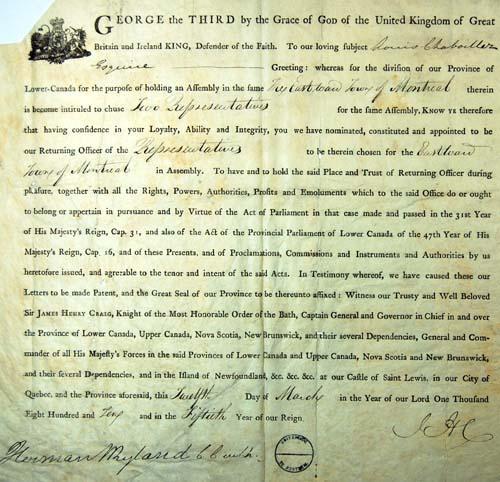 GEORGE the THIRD by the Grace of God of the United Kingdom of Great
Britain and Ireland KING, Defender of the Faith. To our loving subject Louis Chaboillez
Esquire Greeting: whereas for the division of our Province of
Lower-Canada for the purpose of holding an Assembly in the same The East Ward Town of Montreal therein
is become intituled to chuse Two Representatives for the same Assembly. KNOW YE therefore
that having confidence in your Loyalty, Ability and Integrity, you we have nominated, constituted and appointed to be
our Returning Officer of the Representatives to be therein chosen for the East Ward
Town of Montreal in Assembly. To have and to hold the said Place and Trust of Returning Officer during
pleasure, together with all the Rights, Powers, Authorities, Profits and Emoluments which to the said Office do or ought
to belong or appertain in pursuance and by Virtue of the Act of Parliament in that case made and passed in the 31st Year
of His Majesty's Reign, Cap. 31, and also of the Act of the Provincial Parliament of Lower Canada of the 47th Year of His
Majesty's Reign, Cap. 16, and of these Presents, and of Proclamations, Commissions and Instruments and Authorities by us
heretofore issued, and agreable to the tenor and intent of the said Acts. In Testimony whereof, we have caused these our
Letters to be made Patent, and the Great Seal of our Province to be thereunto affixed: Witness our Trusty and Well Beloved
SIR JAMES HENRY CRAIG, Knight of the Most Honorable Order of the Bath, Captain General and Governor in Chief in and over
the Province of Lower Canada, Upper Canada, Nova Scotia, New Brunswick, and their several Dependencies, General and Com-
mander of all His Majesty's Forces in the said Provinces of Lower Canada and Upper Canada, Nova Scotia and New Brunswick,
and their several Dependencies, and in the Island of Newfoundland, &c. &c. &c. at our Castle of Saint Lewis, in our City of
Quebec, and the Province aforesaid, this Twelfth Day of March in the Year of our Lord One Thousand
Eight Hundred and Ten and in the Fiftieth Year of our Reign.
J H C
Herman Ryland